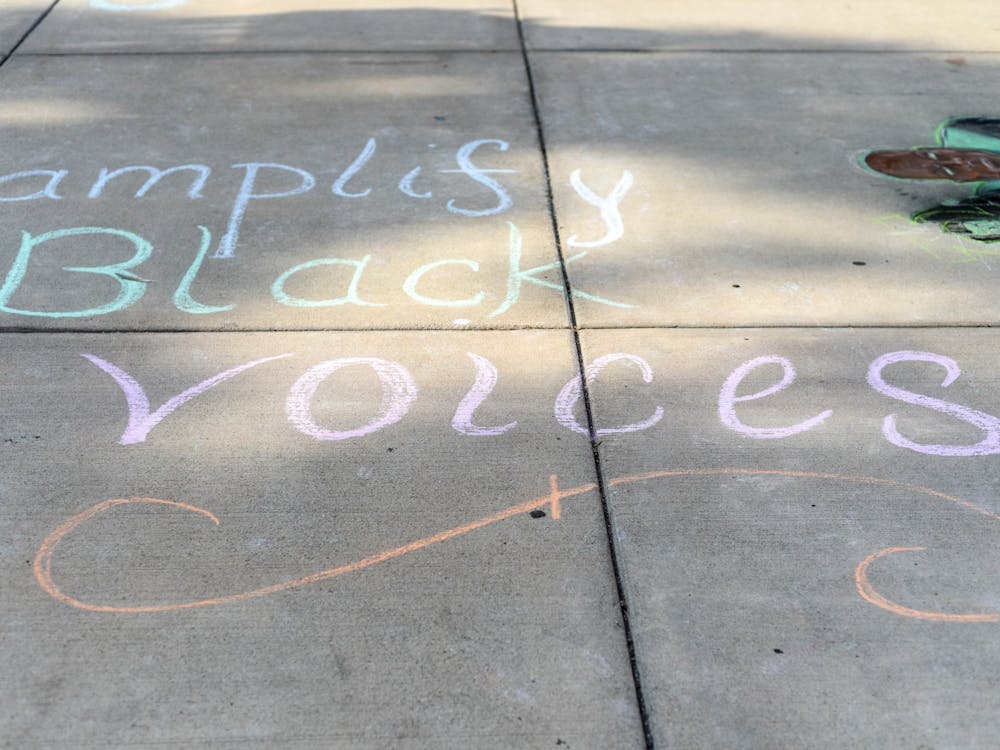 amplify
Black
voices